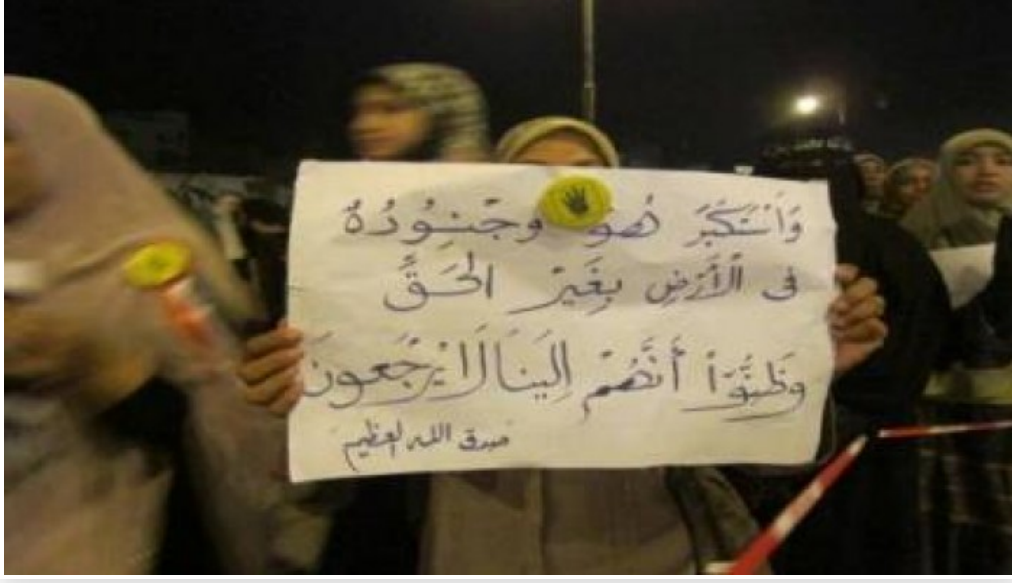 وَاسْتَكْبَرَ هُوَ وَجُنُودُهُ
فِى الْأَرْضِ بِغَيْرِ الْحَقِّ
وَظَنُّوٓا۟ أَنَّهُمْ إِلَيْنَا لَا يُرْجَعُونَ
صدق الله العظيم